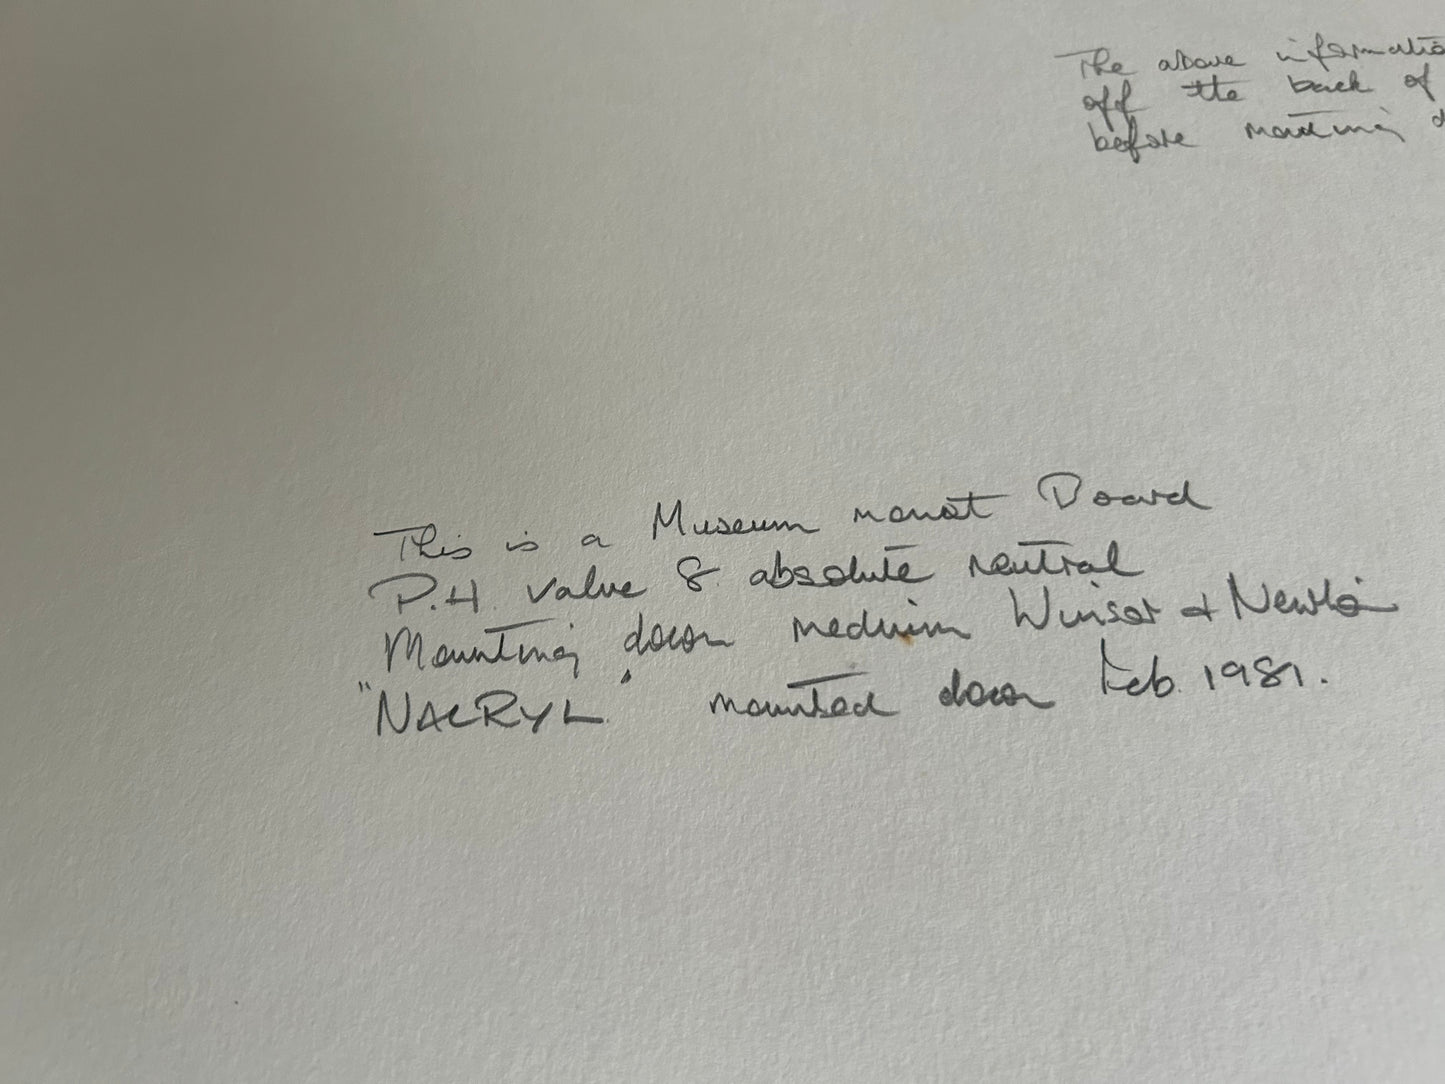 The above informatio
off the back of
before mounting d
This is a Museum mount Board
P.H. value 8. absolute neutral
Mounting down medium Winsor & Newton
"NACRYL" mounted down Feb. 1981.